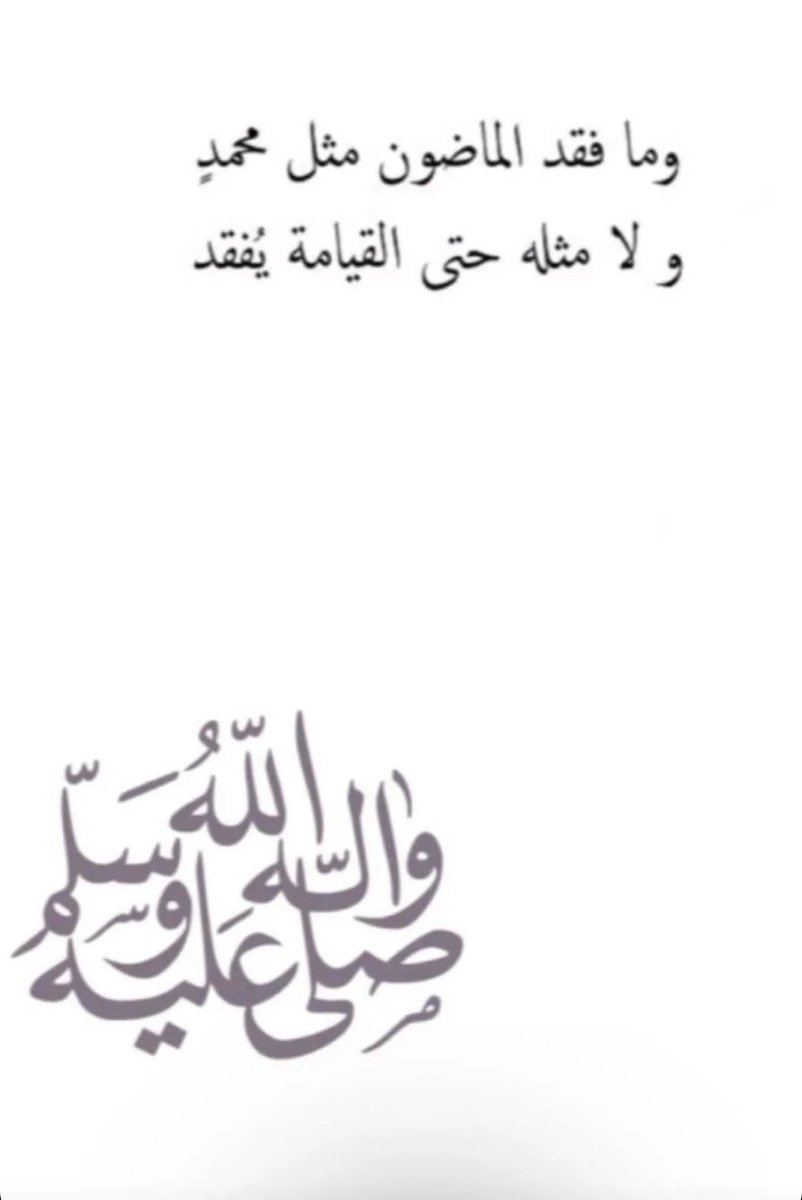 وما فقد الماضون مثل محمدٍ
و لا مثله حتى القيامة يُفقد
صلى الله عليه واله وسلم